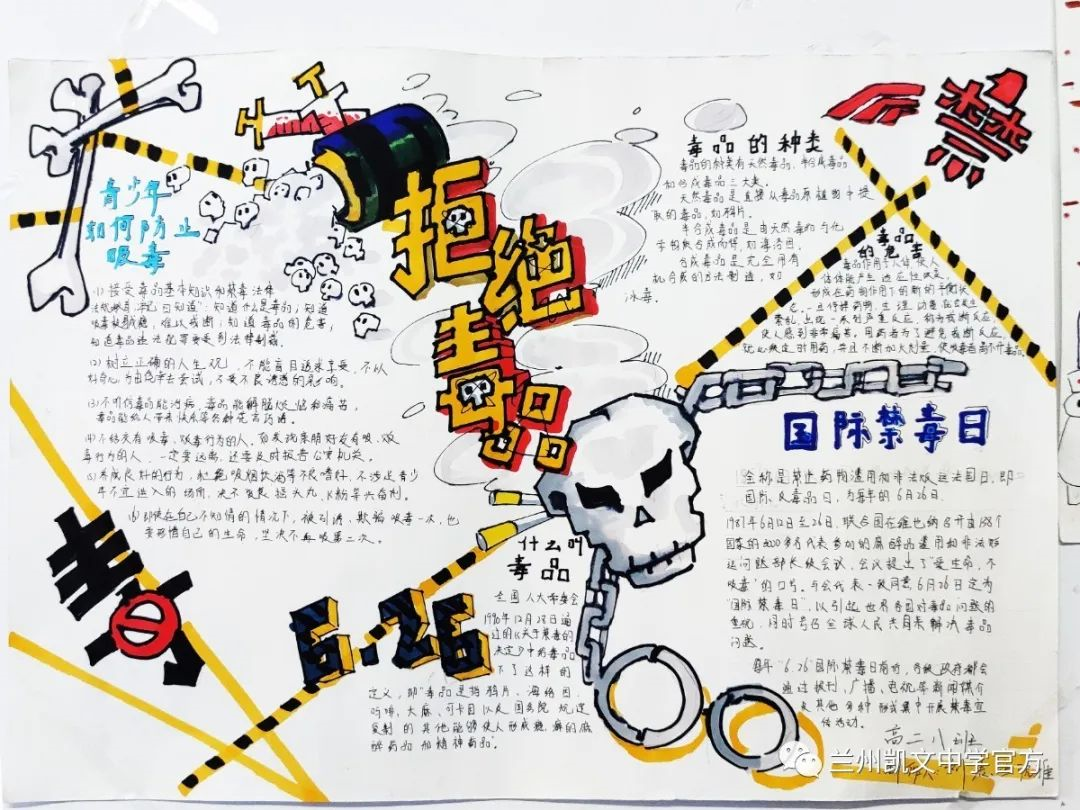 青少年
如何防止
吸毒
(1) 接受毒品基本知识和禁毒法律
法规教育
知道什么是毒品；知道
难以戒断；知道毒品的危害；
知道毒品违法犯罪要受到法律制裁。
(2) 树立正确的人生观，不能盲目追求享受，不以
不受不良诱惑的影响。
毒品能治病，毒品能解脱烦恼和痛苦，
毒品能给人带来快乐等各种花言巧语。
(4) 不结交有吸毒、贩毒行为的人，如发现亲朋好友有吸、贩
毒行为的人，一定要远离，还要及时报告公安机关。
(5) 养成良好的行为，杜绝吸烟饮酒等不良嗜好，不涉足青少
年不宜进入的场所，决不吸食摇头丸、K粉等兴奋剂。
(6) 即使在自己不知情的情况下，被引诱、欺骗吸毒一次，也
要珍惜自己的生命，坚决不再吸第二次。
毒
拒绝
毒品
6.26
什么叫
毒品
全国人大常委会
1990年12月28日通
过的《关于禁毒的
决定》中将毒品
下了这样的
定义，即“毒品是指鸦片、海洛因、
吗啡、大麻、可卡因以及国务院规定
管制的其他能够使人形成瘾癖的麻
醉药品和精神药品”
禁
毒品的种类
毒品的种类有天然毒品、半合成毒品
和合成毒品三大类。
天然毒品是直接从毒品原植物中提
取的毒品，如鸦片。
半合成毒品是由天然毒品与化
学物质合成而得，如海洛因。
合成毒品是完全用有
机合成的方法制造，如
冰毒。
毒品
的危害
毒品作用于人体，使人
体体能产生适应性改变，
形成在药物作用下的新的平衡状
态，一旦停掉药物，生理功能就会发生
紊乱，出现一系列严重反应，称为戒断反应，
使人感到非常痛苦。用药者为了避免戒断反应，
就必须定时用药，并且不断加大剂量，使吸毒者离不开毒品。
国际禁毒日
全称是禁止药物滥用和非法贩运国际日，即
国际反毒品日，为每年的6月26日。
1987年6月12日至26日，联合国在维也纳召开有138个
国家的3000多名代表参加的麻醉品滥用和非法贩
运问题部长级会议，会议提出了“爱生命，不
吸毒”的口号。与会代表一致同意6月26日定为
“国际禁毒日”，以引起世界各国对毒品问题的
重视，同时号召全球人民共同来解决毒品
问题。
每年“6.26”国际禁毒日前后，各级政府都会
通过报刊、广播、电视等新闻媒介
及其他多种形式集中开展禁毒宣
传活动。
高二八班
兰州凯文中学官方